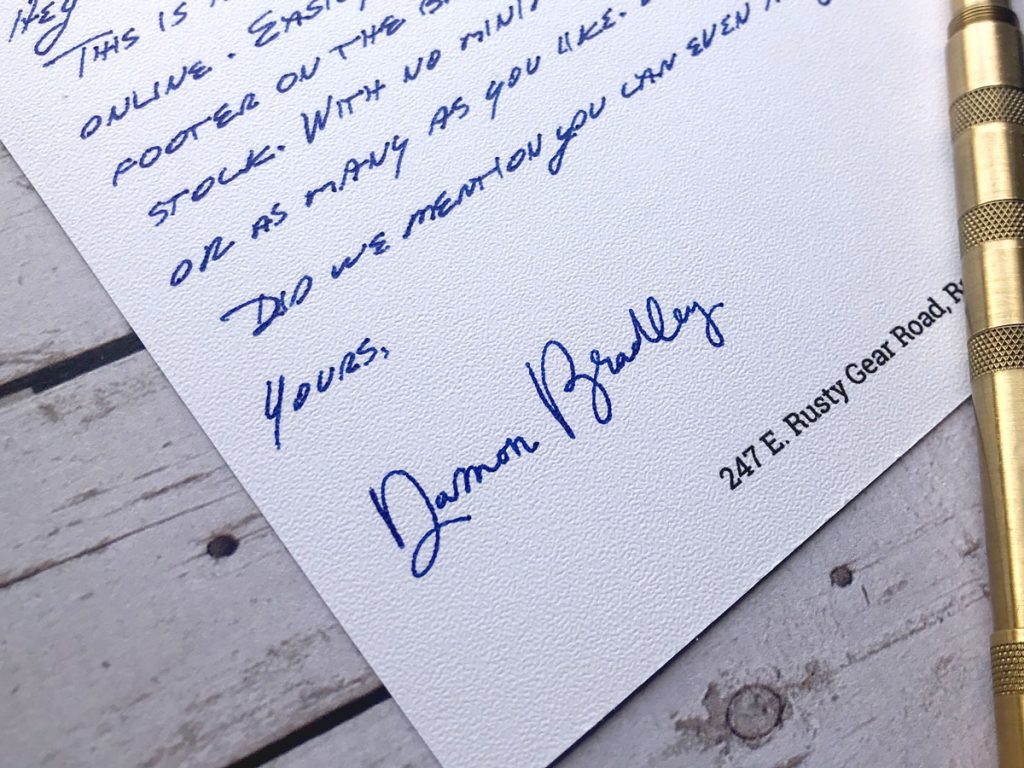 Hey
THIS IS
ONLINE. EASILY
FOOTER ON THE
STOCK. WITH NO
OR AS MANY AS YOU LIKE.
DID WE MENTION YOU CAN EVEN
YOURS,
Damon Bradley
247 E. Rusty Gear Road,